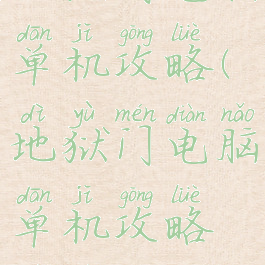 dān jī gōng lüè
单机攻略(
dì yù mén diàn nǎo
地狱门电脑
dān jī gōng lüè
单机攻略